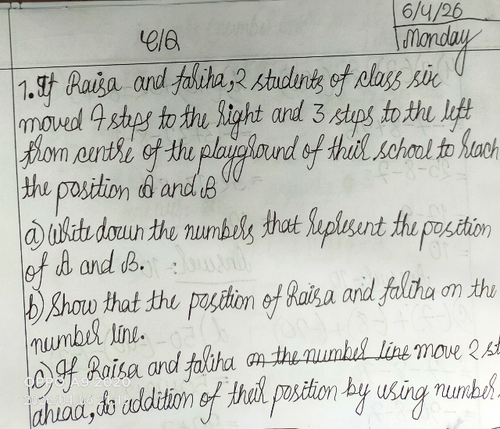 6/4/26
C/Q
Monday
1. If Raisa and faliha, 2 students of class six
moved 7 steps to the right and 3 steps to the left
from centre of the playground of their school to reach
the position A and B
a) Write down the numbers that represent the position
of A and B.
b) Show that the position of Raisa and faliha on the
number line.
c) If Raisa and faliha on the number line move 2 st
ahead, do addition of their position by using number